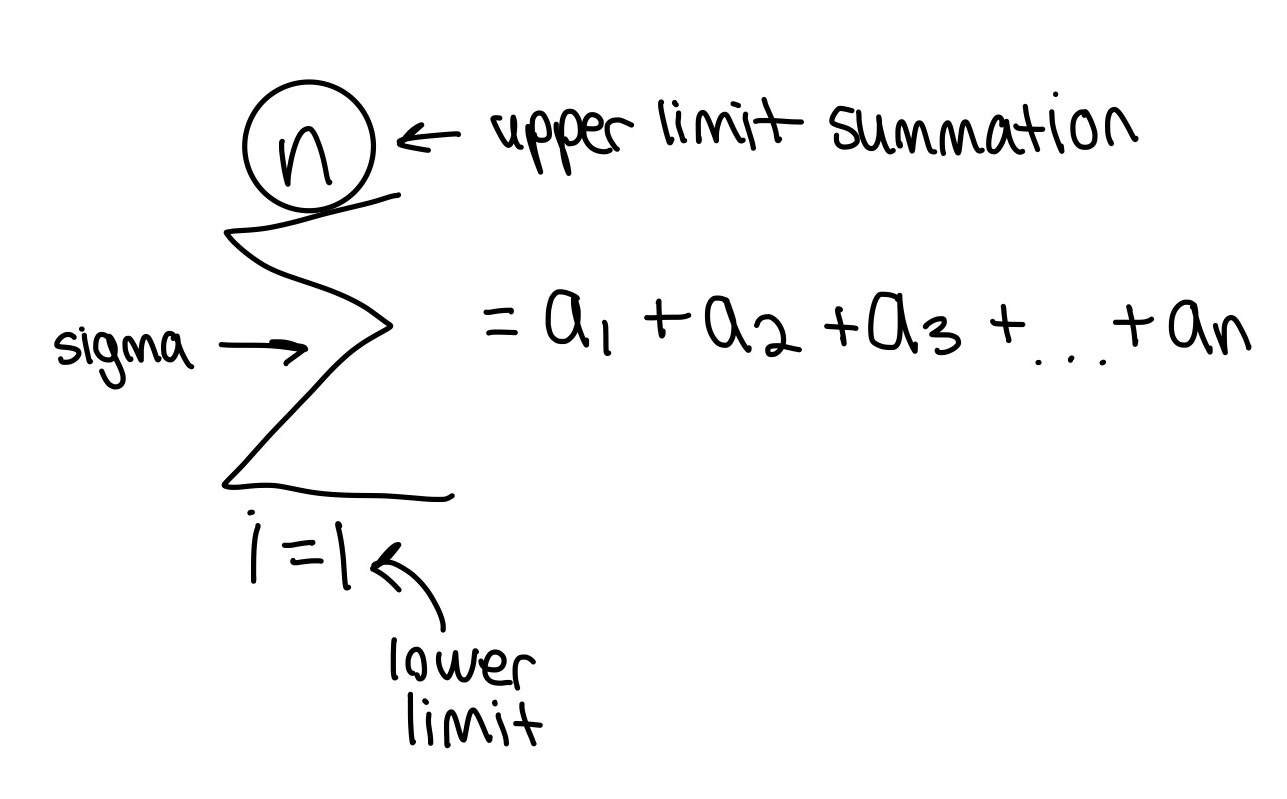 n ← upper limit summation
sigma → Σ = a₁ + a₂ + a₃ + ... + aₙ
i = 1
lower
limit